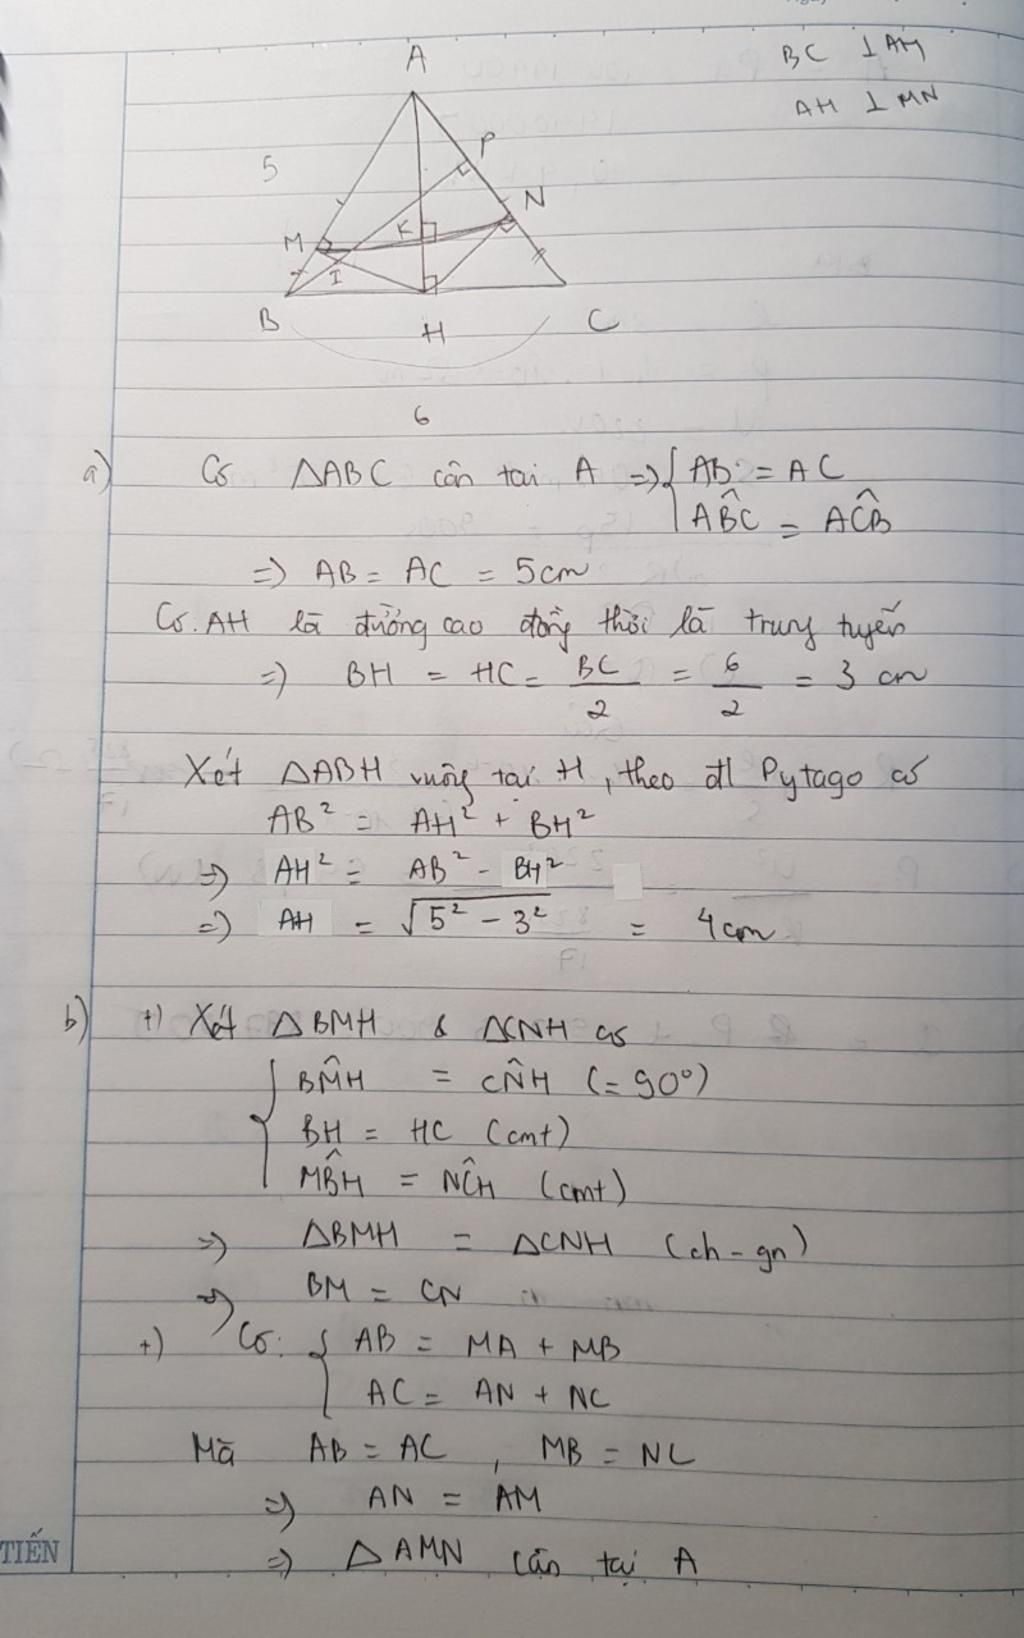 BC ⊥ AH
AH ⊥ MN
A
5
P
N
M
K
I
B
H
C
6
a) Có ΔABC cân tại A => { AB = AC
AB̂C = AĈB
=> AB = AC = 5cm
Có. AH là đường cao đồng thời là trung tuyến
=> BH = HC = BC/2 = 6/2 = 3 cm
Xét ΔABH vuông tại H, theo đl Pytago có
AB² = AH² + BH²
=> AH² = AB² - BH²
=> AH = √(5² - 3²) = 4cm
b) +) Xét ΔBMH & ΔCNH có
BM̂H = CN̂H (= 90°)
BH = HC (cmt)
MB̂H = NĈH (cmt)
=> ΔBMH = ΔCNH (ch - gn)
=> BM = CN
+) Có: { AB = MA + MB
AC = AN + NC
Mà AB = AC, MB = NC
=> AN = AM
=> ΔAMN cân tại A
TIẾN